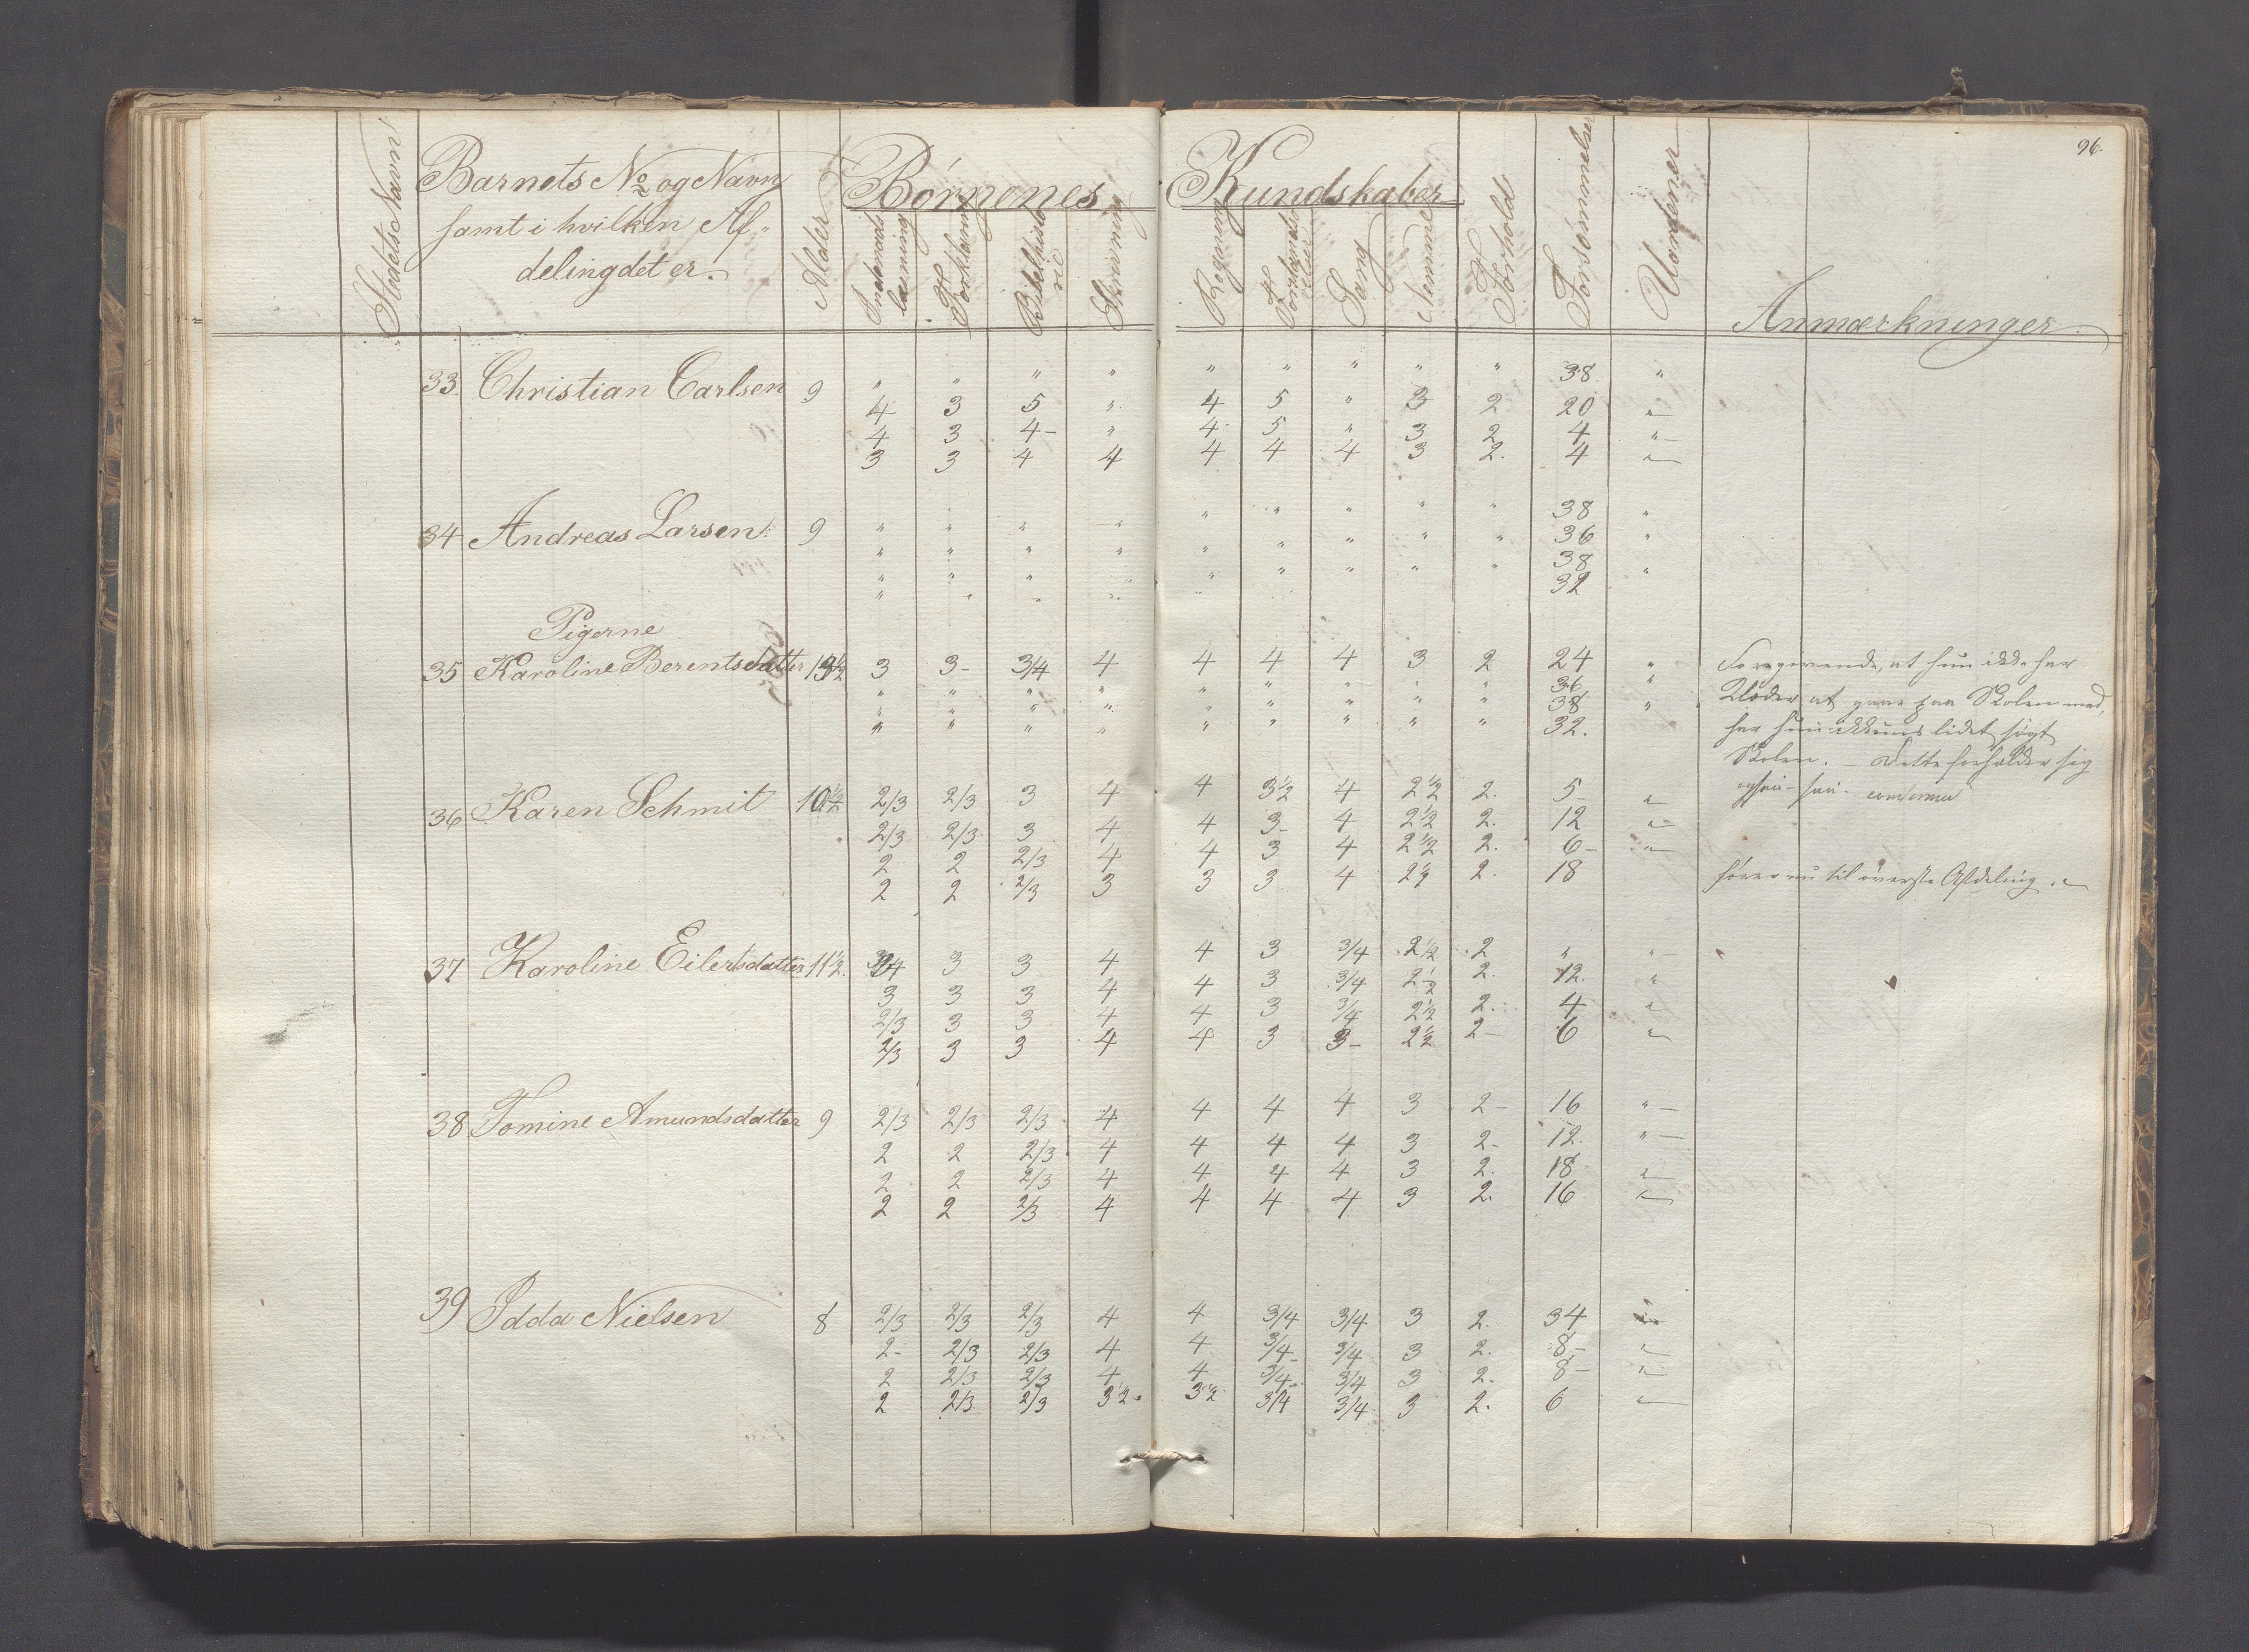 96.
Stedets Navn
Barnets No og Navn
samt i hvilken Af-
deling det er.
Alder
Børnenes Kundskaber
Indenads
læsning
Forklaring
Bibelhisto
rie
Skrivning
Regning
Sang
Nemme
Forhold
Forsømmelser
Udeblivelser
Anmærkninger
33. Christian Carlsen 9 " " " " " " " " " 38 "
4 3 5 " 4 5 " 3 2 20 "
4 3 4- " 4 5 " 3 2 4 "-
3 3 4 4 4 4 4 3 2. 4 "
34 Andreas Larsen 9 " " " " " " " " " 38 "
" " " " " " " " " 36 "
" " " " " " " " " 38 "
" " " " " 32
Pigerne
35 Karoline Berentsdatter 13½ 3 3- 3/4 4 4 4 4 3 2 24 " Foregivende, at hun ikke har
" " " " " " " " " 36 " Klæder at gaae paa Skolen med,
" " " " " " " " " 38 " har hun ikkuns lidet søgt
" " " " " " " " " 32. Skolen. – Dette forholder sig
ogsaa saa.
36 Karen Schmit 10½ 2/3 2/3 3 4 4 3½ 4 2½ 2. 5 "
2/3 2/3 3 4 4 3- 4 2½ 2. 12 "
2 2 2/3 4 4 3 4 2½ 2. 6- "
2 2 2/3 3 3 3 4 2½ 2. 18 hører nu til øverste Afdeling.
37 Karoline Eilertsdatter 11½. 3/4 3 3 4 4 3 3/4 2½ 2 " "-
3 3 3 4 4 3 3/4 2½ 2. 12. "
2/3 3 3 4 4 3 3/4 2½ 2. 4 "
2/3 3 3 4 4 3 3- 2½ 2- 6 "
38 Tomine Amundsdatter 9 2/3 2/3 2/3 4 4 4 4 3 2- 16 "-
2 2 2/3 4 4 4 4 3 2- 12. "-
2 2 2/3 4 4 4 4 3 2. 18 "
2 2 2/3 4 4 4 4 3 2. 16 "
39 Idda Nielsen 8 2/3 2/3 2/3 4 4 3/4 3/4 3 2. 34 "
2- 2/3 2/3 4 4 3/4 3/4 3 2. 8- "
2 2/3 2/3 4 4 3/4 3/4 3 2. 8- "
2 2/3 2/3 3½. 3½ 3/4 3/4 3 2. 6 "